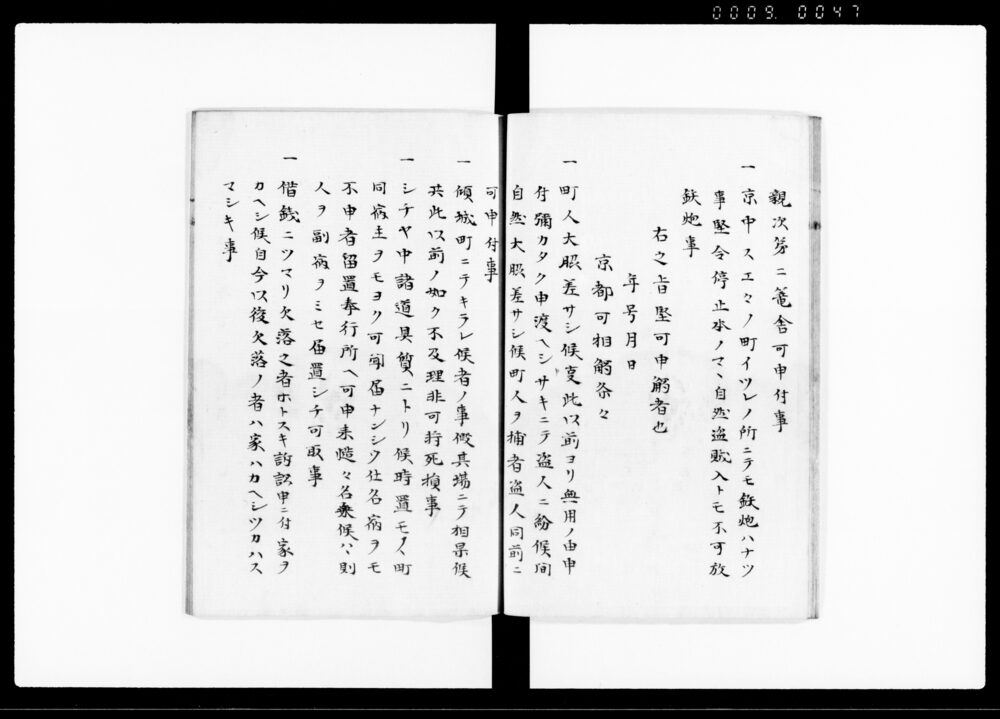 0009. 0047
親次第ニ篭舎可申付事
一 京中スエ々ノ町イツレノ所ニテモ鉄炮ハナツ
事堅令停止本ノマヽ自然盗賊入トモ不可放
鉄炮事
右之旨堅可申觸者也
年号月日
京都可相觸条々
一 町人大脇差サシ候事此以前ヨリ無用ノ由申
付彌カタク申渡ヘシサキニテ盗人ニ紛候間
自然大脇差サシ候町人ヲ捕者盗人同前ニ
可申付事
一 傾城町ニテキラレ候者ノ事假其場ニテ相果候
共此以前ノ如ク不及理非可為死損事
一 シチヤ中諸道具質ニトリ候時置モノヽ町
同宿主ヲモヨク可聞届ナンシツ仕名宿ヲモ
不申者留置奉行所ヘ可申来慥々名乗候ハヽ則
人ヲ副宿ヲミセ届置シチ可取事
一 借銭ニツマリ欠落之者ホトスキ訴訟申ニ付家ヲ
カヘシ候自今以後欠落ノ者ハ家ハカヘシツカハス
マシキ事